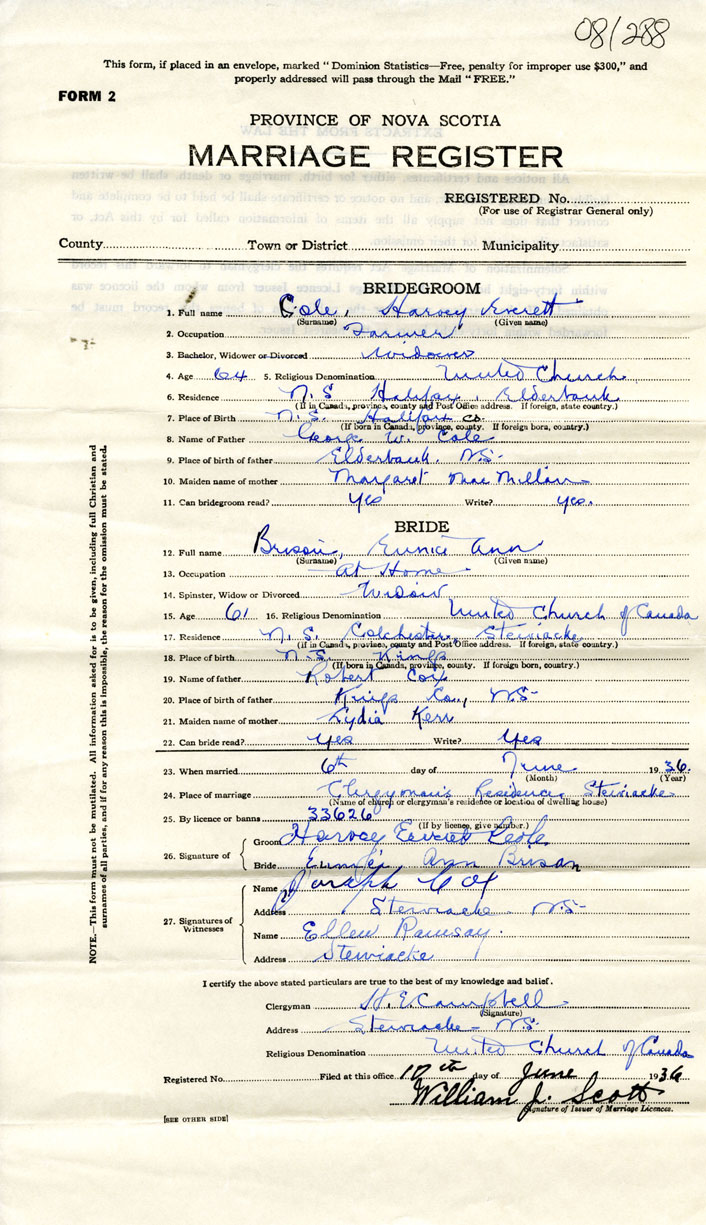 08/288
This form, if placed in an envelope, marked "Dominion Statistics—Free, penalty for improper use $300," and
properly addressed will pass through the Mail "FREE."
FORM 2
PROVINCE OF NOVA SCOTIA
MARRIAGE REGISTER
REGISTERED No.
(For use of Registrar General only)
County Town or District Municipality
BRIDEGROOM
1. Full name Cole, Harvey Everett
(Surname) (Given name)
2. Occupation Farmer
3. Bachelor, Widower or Divorced Widower
4. Age 64 5. Religious Denomination United Church
6. Residence N.S. Halifax, Elderbank
(If in Canada, province, county and Post Office address. If foreign, state country.)
7. Place of Birth N.S. Halifax Co.
(If born in Canada, province, county. If foreign born, country.)
8. Name of Father George W. Cole
9. Place of birth of father Elderbank. N.S.
10. Maiden name of mother Margaret MacMillan
11. Can bridegroom read? Yes Write? Yes.
BRIDE
12. Full name Eunice Ann
(Surname) (Given name)
13. Occupation At Home
14. Spinster, Widow or Divorced Widow
15. Age 61 16. Religious Denomination United Church of Canada
17. Residence N.S. Colchester, Stewiacke
(If in Canada, province, county and Post Office address. If foreign, state country.)
18. Place of birth N.S. Kings
(If born in Canada, province, county. If foreign born, country.)
19. Name of father Robert Cox
20. Place of birth of father Kings Co., N.S.
21. Maiden name of mother Lydia Kerr
22. Can bride read? Yes Write? Yes
23. When married 6th day of June 1936.
(Month) (Year)
24. Place of marriage Clergyman's Residence, Stewiacke
(Name of church or clergyman's residence or location of dwelling house)
25. By licence or banns 33626
(If by license, give number.)
26. Signature of
Groom Harvey Everett Cole
Bride Eunice Ann
27. Signatures of Witnesses
Name Cox
Address Stewiacke N.S.
Name Ellen Ramsay.
Address Stewiacke
I certify the above stated particulars are true to the best of my knowledge and belief.
Clergyman H. E. Campbell
(Signature)
Address Stewiacke - N.S.
Religious Denomination United Church of Canada
Registered No. Filed at this office 17th day of June 1936
William J. Scott
Signature of Issuer of Marriage Licences.
[SEE OTHER SIDE]
NOTE.—This form must not be mutilated. All information asked for is to be given, including full Christian and
surnames of all parties, and if for any reason this is impossible, the reason for the omission must be stated.